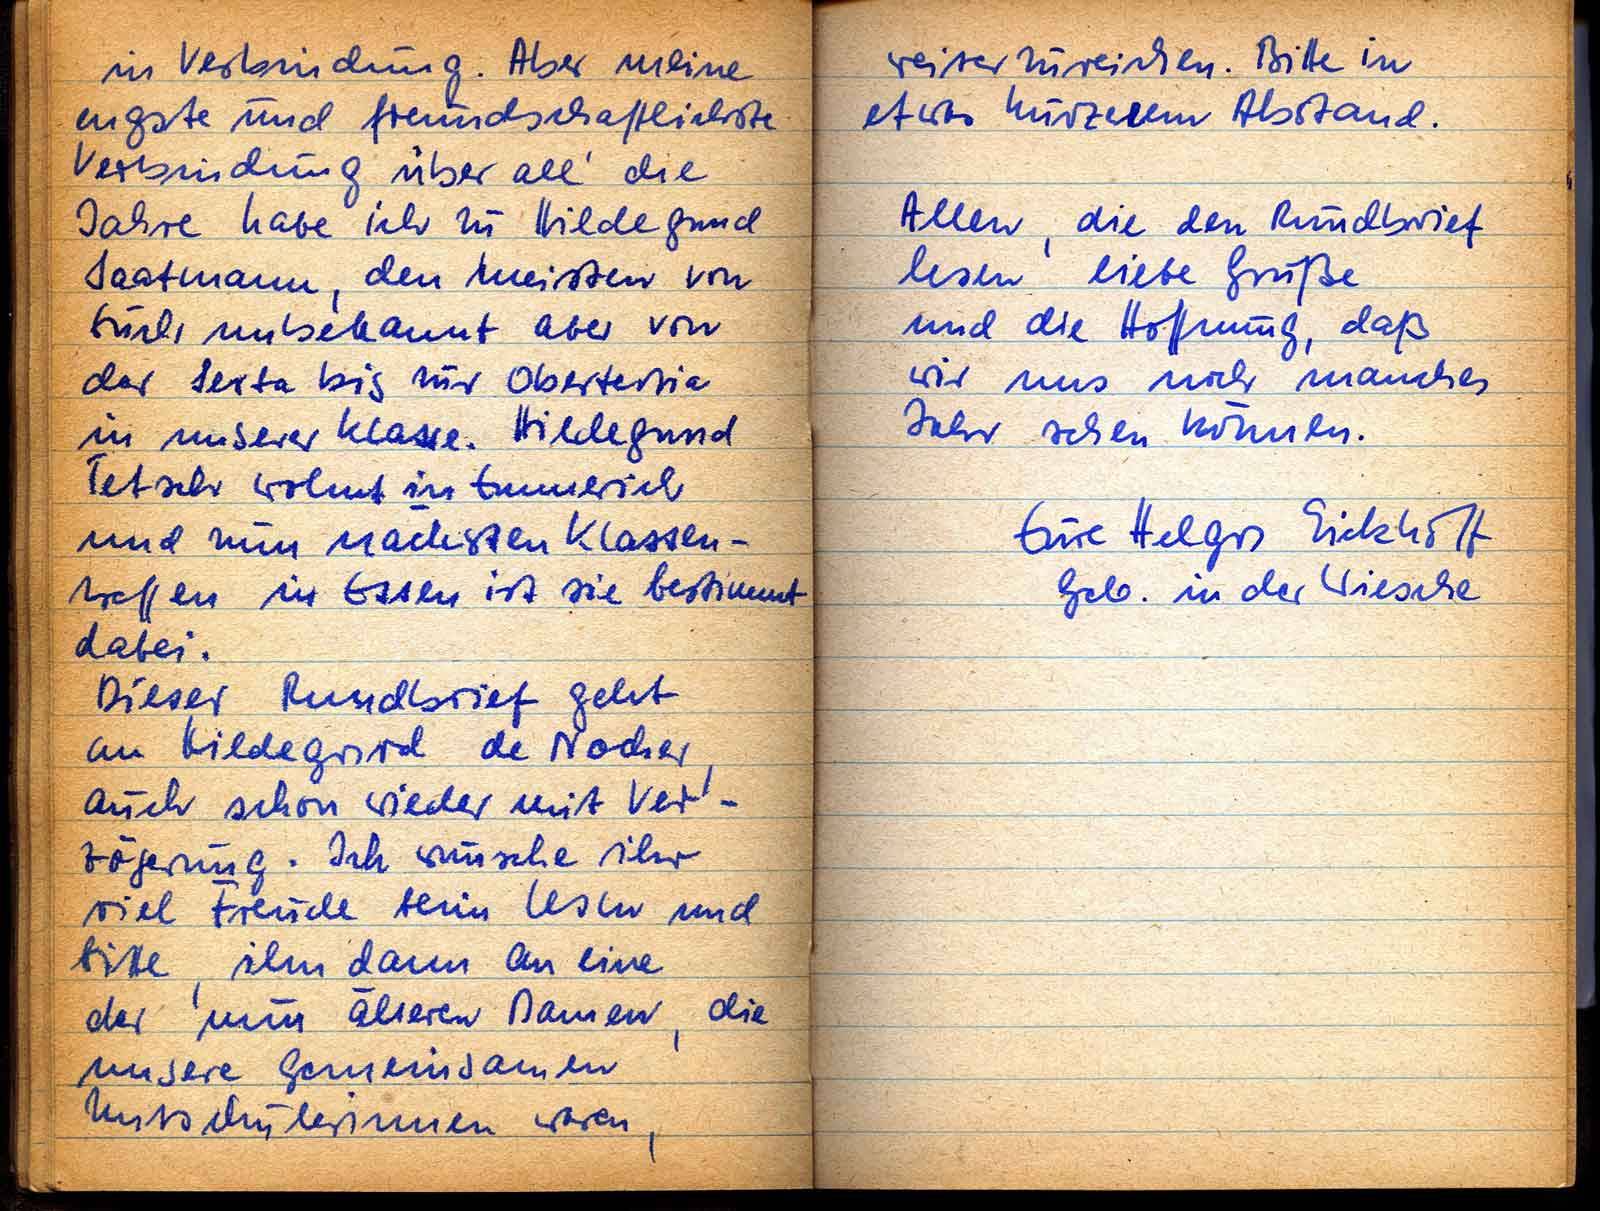 in Verbindung. Aber meine
engste und freundschaftlichste
Verbindung über all' die
Jahre habe ich zu Hildegund
Saatmann, den meisten von
Euch unbekannt aber von
der Sexta bis zur Obertertia
in unserer Klasse. Hildegund
Tetsch wohnt in Emmerich
und zum nächsten Klassen-
treffen in Essen ist sie bestimmt
dabei.
Dieser Rundbrief geht
an Hildegard de
auch schon wieder mit Ver-
zögerung. Ich wünsche ihr
viel Freude beim Lesen und
bitte, ihn dann an eine
der nun älteren Damen, die
unsere gemeinsamen
Mitschülerinnen waren,
weiterzureichen. Bitte in
etwas kürzerem Abstand.
Allen, die den Rundbrief
lesen liebe Grüße
und die Hoffnung, daß
wir uns noch manches
Jahr sehen können.
Eure Helga Eickhoff
geb. in der Wiesche